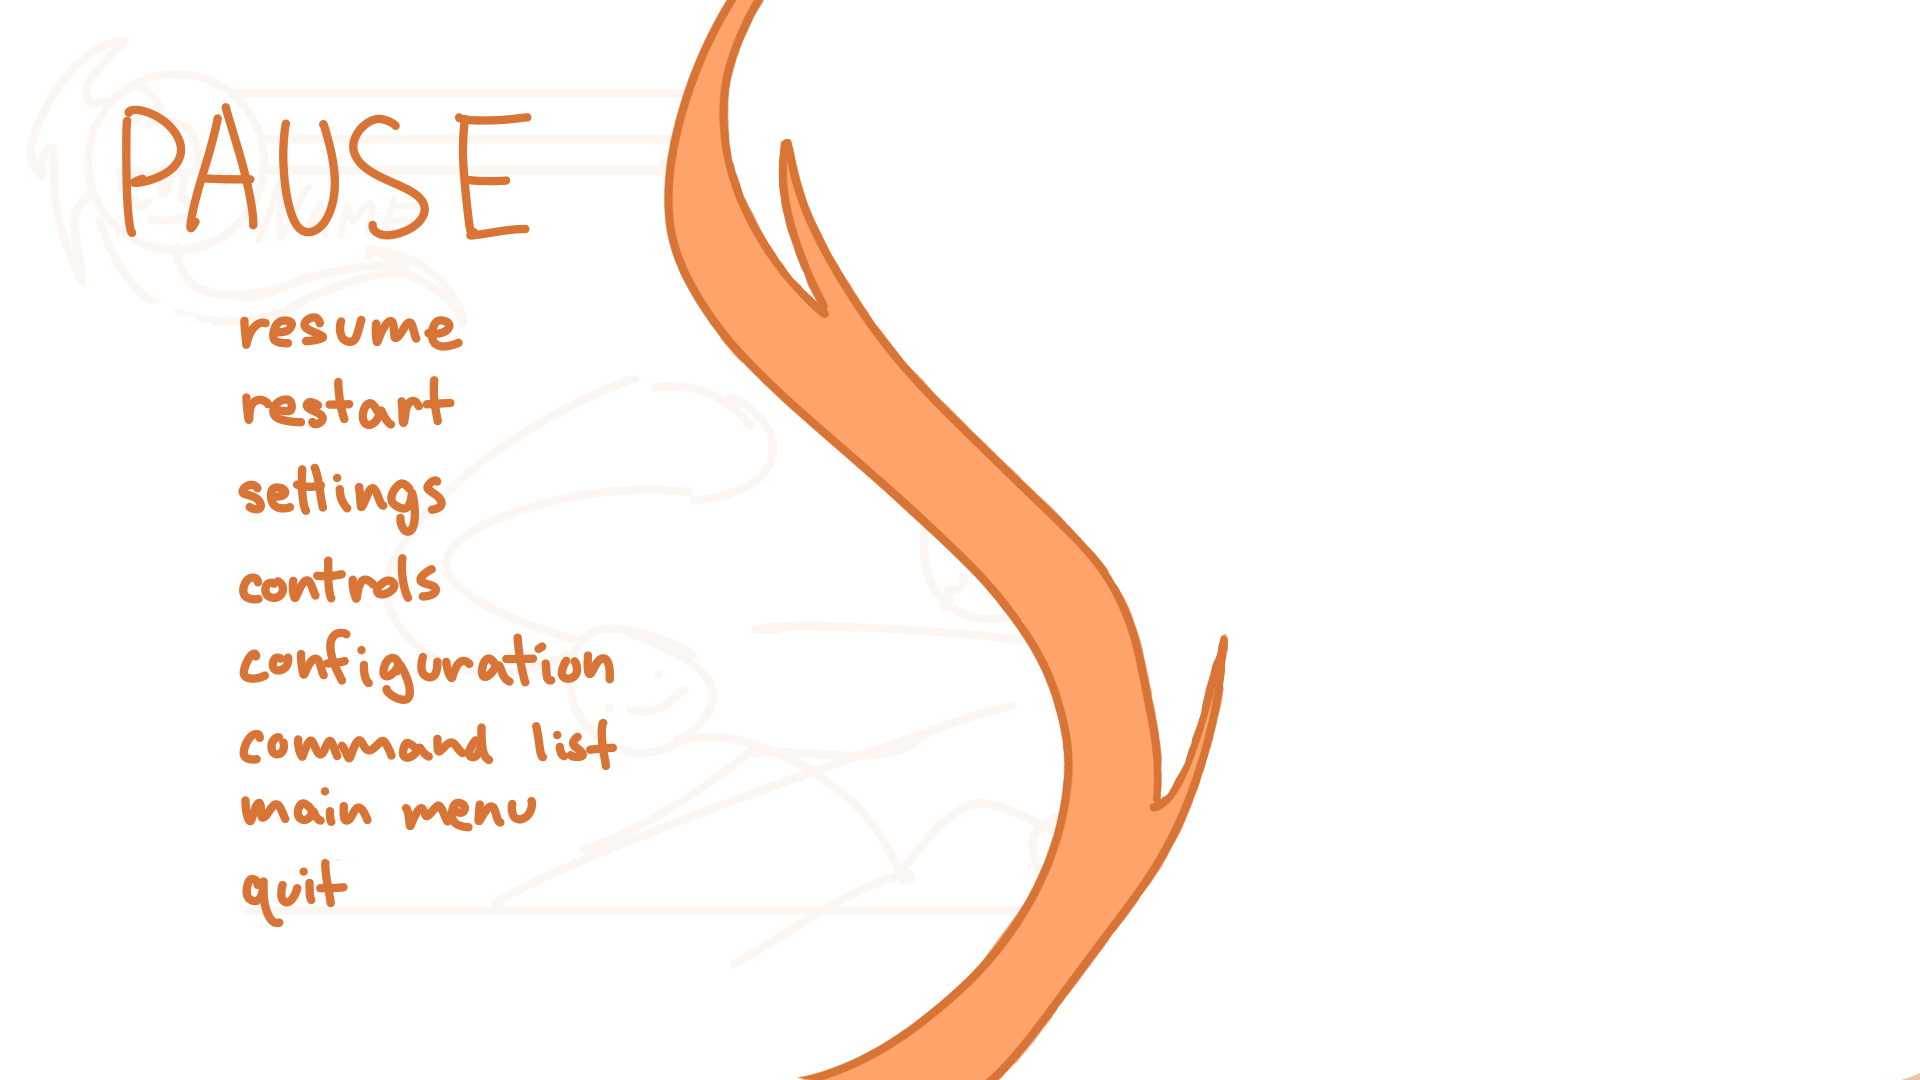 PAUSE
NAME
resume
restart
settings
controls
configuration
command list
main menu
quit